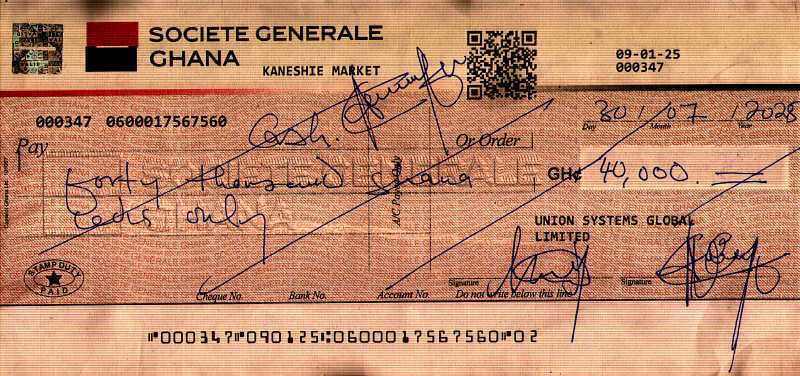 SOCIETE GENERALE
GHANA
KANESHIE MARKET
09-01-25
000347
000347 0600017567560
30 / 07 / 2025
Day Month Year
Pay
Cash.
Or Order
forty thousand Ghana
GH¢ 40,000.
cedis only
A/C Payee Only
UNION SYSTEMS GLOBAL
LIMITED
STAMP DUTY
PAID
Signature
Signature
Cheque No. Bank No. Account No. Do not write below this line
⑈000347⑈090125⑆0600017567560⑈02